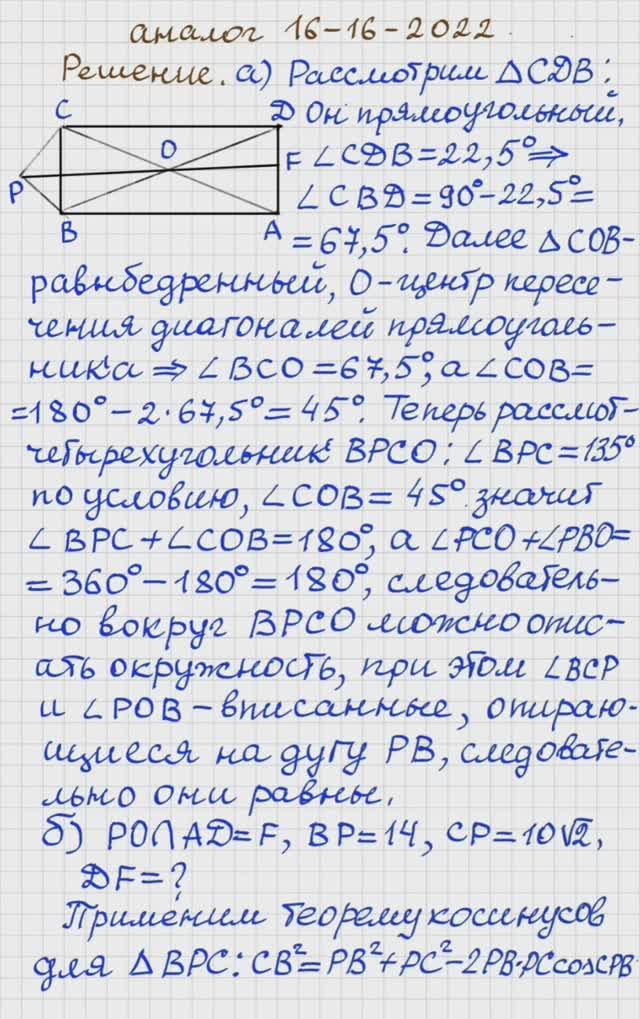 аналог 16-16-2022
Решение. а) Рассмотрим △CDB:
C D Он прямоугольный,
O
P F ∠CDB=22,5°⇒
∠CBD=90°-22,5°=
B A =67,5°. Далее △COB-
равнбедренный, О-центр пересе-
чения диагоналей прямоуголь-
ника ⇒ ∠BCO=67,5°, а ∠COB=
=180°-2·67,5°=45°. Теперь рассмот-
четырехугольник BPCO: ∠BPC=135°
по условию, ∠COB=45° значит
∠BPC+∠COB=180°, а ∠PCO+∠PBO=
=360°-180°=180°, следователь-
но вокруг BPCO можно опис-
ать окружность, при этом ∠BCP
и ∠POB-вписанные, опираю-
щиеся на дугу PB, следовате-
льно они равны.
б) PO∩AD=F, BP=14, CP=10√2,
DF=?
Применим теорему косинусов
для △BPC: CB²=PB²+PC²-2PB·PCcosCPB